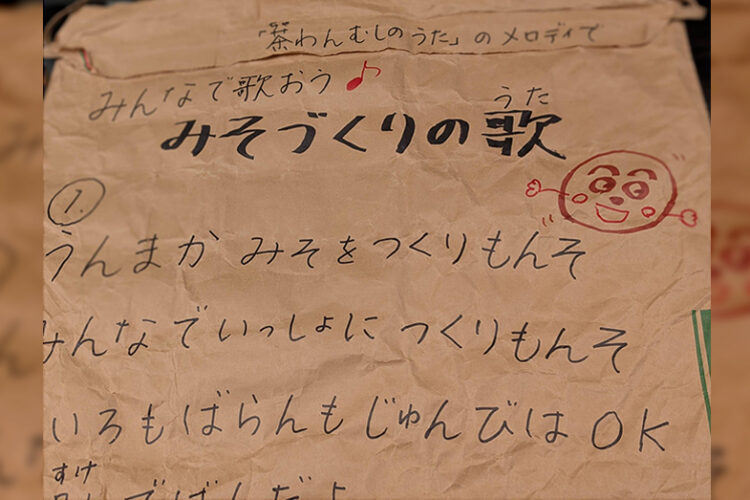 「茶わんむしのうた」のメロディで
みんなで歌おう♪
うた
みそづくりの歌
1.
うんまか みそをつくりもんそ
みんなでいっしょに つくりもんそ
いろもばらんも じゅんびはOK
すけ